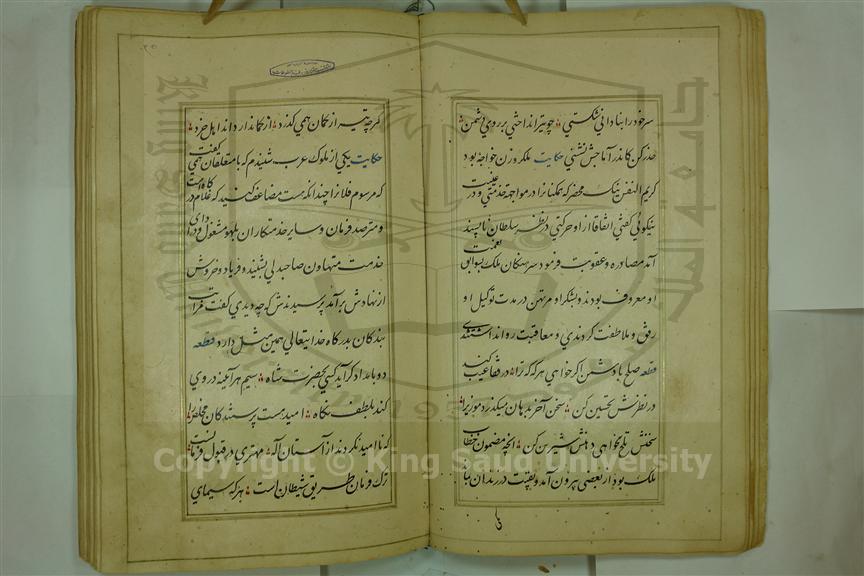 سر خود را بنادانی شکستی چو تیر انداختی بر روی دشمن
حذر کن کاندر آماجش نشستی حکایت ملک زوزن خواجه بود
کریم النفس نیک محضر که همکنانرا در مواجهه خدمت و در غیبت
نیکویی گفتی اتفاقا از او حرکتی در نظر سلطان ناپسند
آمد مصادره و عقوبت فرمود سرهنگان ملک بسوابق نعمت
او معروف بودند و بشکر او مرتهن در مدت توکیل او
رفق و ملاطفت کردندی و معاقبت روا نداشتندی
قطعه صلح با دشمن اکر خواهی هر که که ترا در قفا عیب کند
در نظرش تحسین کن سخن آخر بدهان میکذرد موذیرا
سخنش تلخ نخواهی دهنش شیرین کن آنچه مضمون خطاب
ملک بود از بعضی بیرون آمد و بقیت در زندان
کرچه تیر از کمان همی کذرد از کماندار داند اهل خرد
حکایت یکی از ملوک عرب شنیدم که با متعلقان همی کفت
که مرسوم فلانرا چندانکه هست مضاعف کنید که
و مترصد فرمان و سایر خدمتکاران بلهو مشغول و در ادای
خدمت متهاون صاحبدلی بشنید و فریاد و خروش
از نهادش برآمد پرسیدندش که چه دیدی کفت مراتب
بندکان بدرکاه خدایتعالی همین مثل دارد قطعه
دو بامداد کر آید کسی بخدمت شاه سیم هرآینه در وی
کند بلطف نکاه امید هست پرستندکان مخلصرا
که نا امید نکردند از آستان اله مهتری در قبول فرمانست
ترک فرمان طریق شیطان است هر که سیمای
Copyright © King Saud University